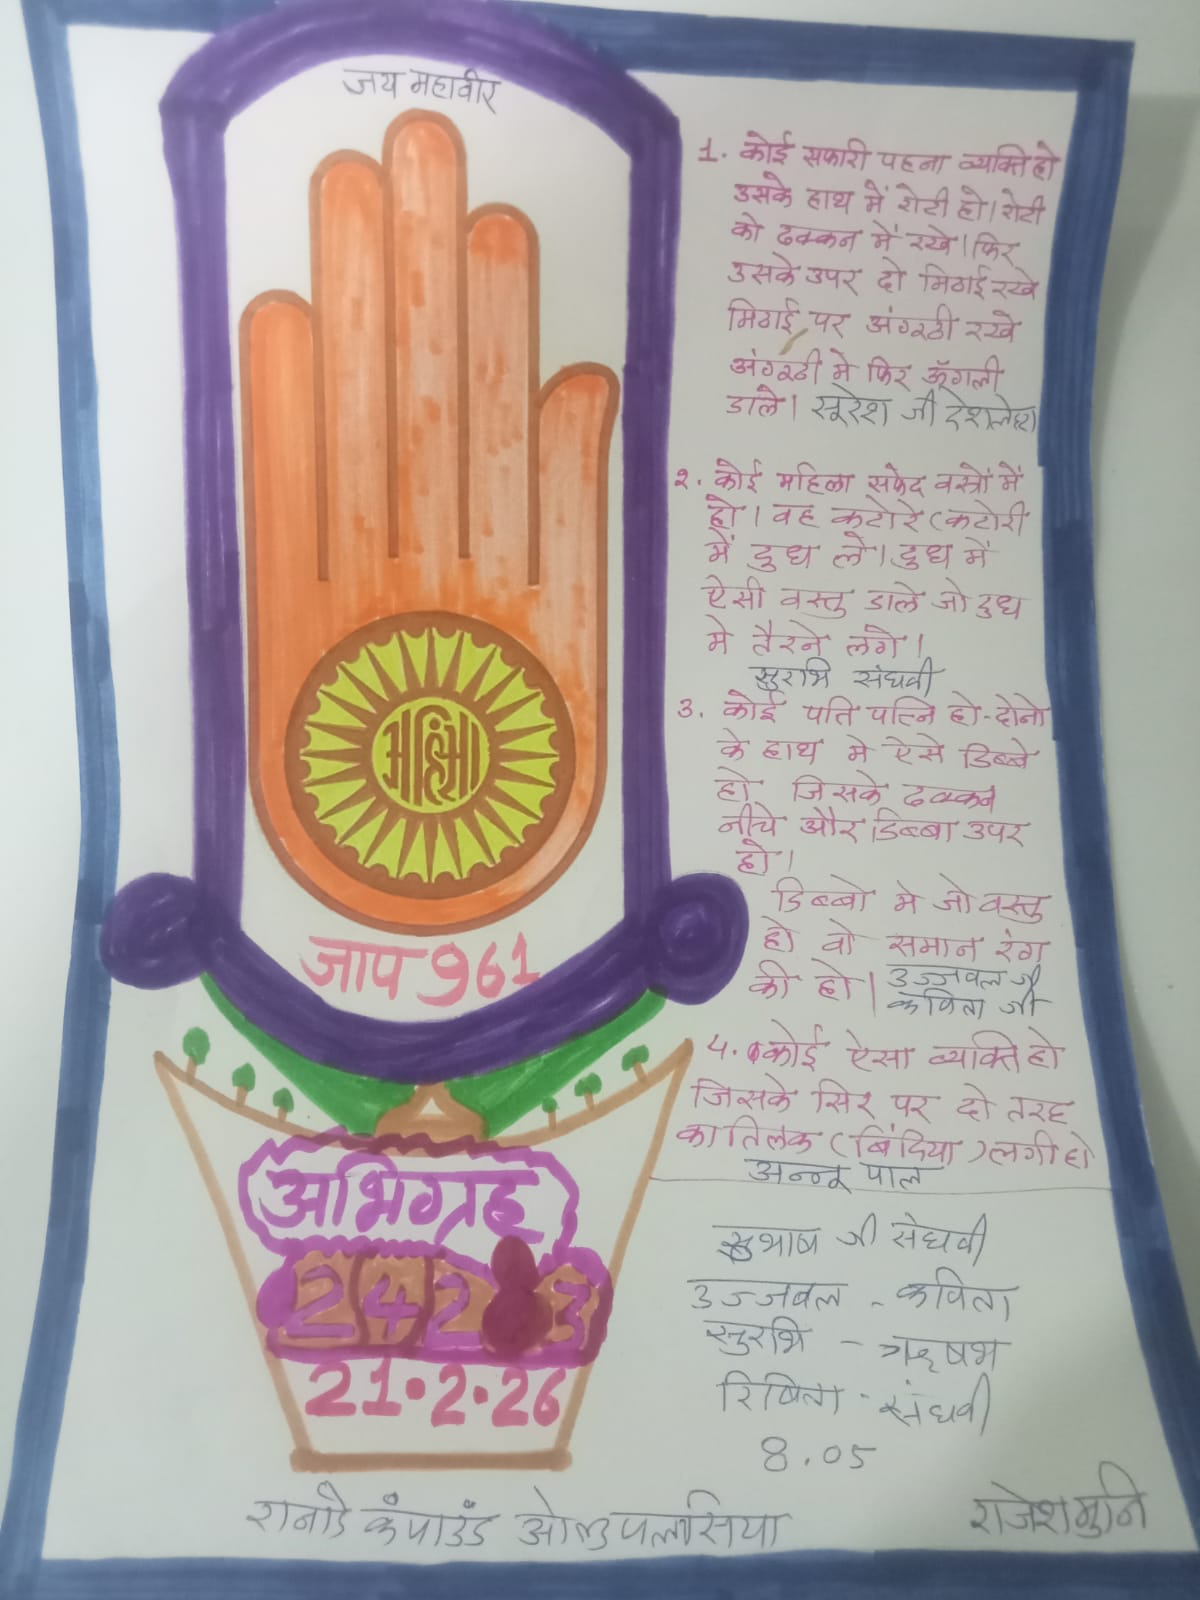 जय महावीर
1. कोई सफारी पहना व्यक्ति हो
उसके हाथ में रोटी हो। रोटी
को ढक्कन में रखे। फिर
उसके उपर दो मिठाई रखे
मिठाई पर अंगूठी रखे
अंगूठी मे फिर ऊँगली
डाले। सूरेश जी देशलेहरा
२. कोई महिला सफेद वस्त्रों में
हो। वह कटोरे (कटोरी
में दुध ले। दुध में
ऐसी वस्तु डाले जो दुध
मे तैरने लगे।
सुरभि संघवी
३. कोई पति पत्नि हो - दोनो
के हाथ मे ऐसे डिब्बे
हो जिसके ढक्कन
नीचे और डिब्बा उपर
हो।
डिब्बो मे जो वस्तु
हो वो समान रंग
की हो। उज्जवल जी
कविता जी
4. कोई ऐसा व्यक्ति हो
जिसके सिर पर दो तरह
का तिलक (बिंदिया) लगी हो
अन्नू पाल
अहिंसा
जाप 961
अभिग्रह
242 3
21.2.26
सुभाष जी संघवी
उज्जवल - कविता
सुरभि - ऋषभ
रिषिता - संघवी
8.05
रानाडे कंपाउंड ओल्ड पलासिया
राजेशमुनि